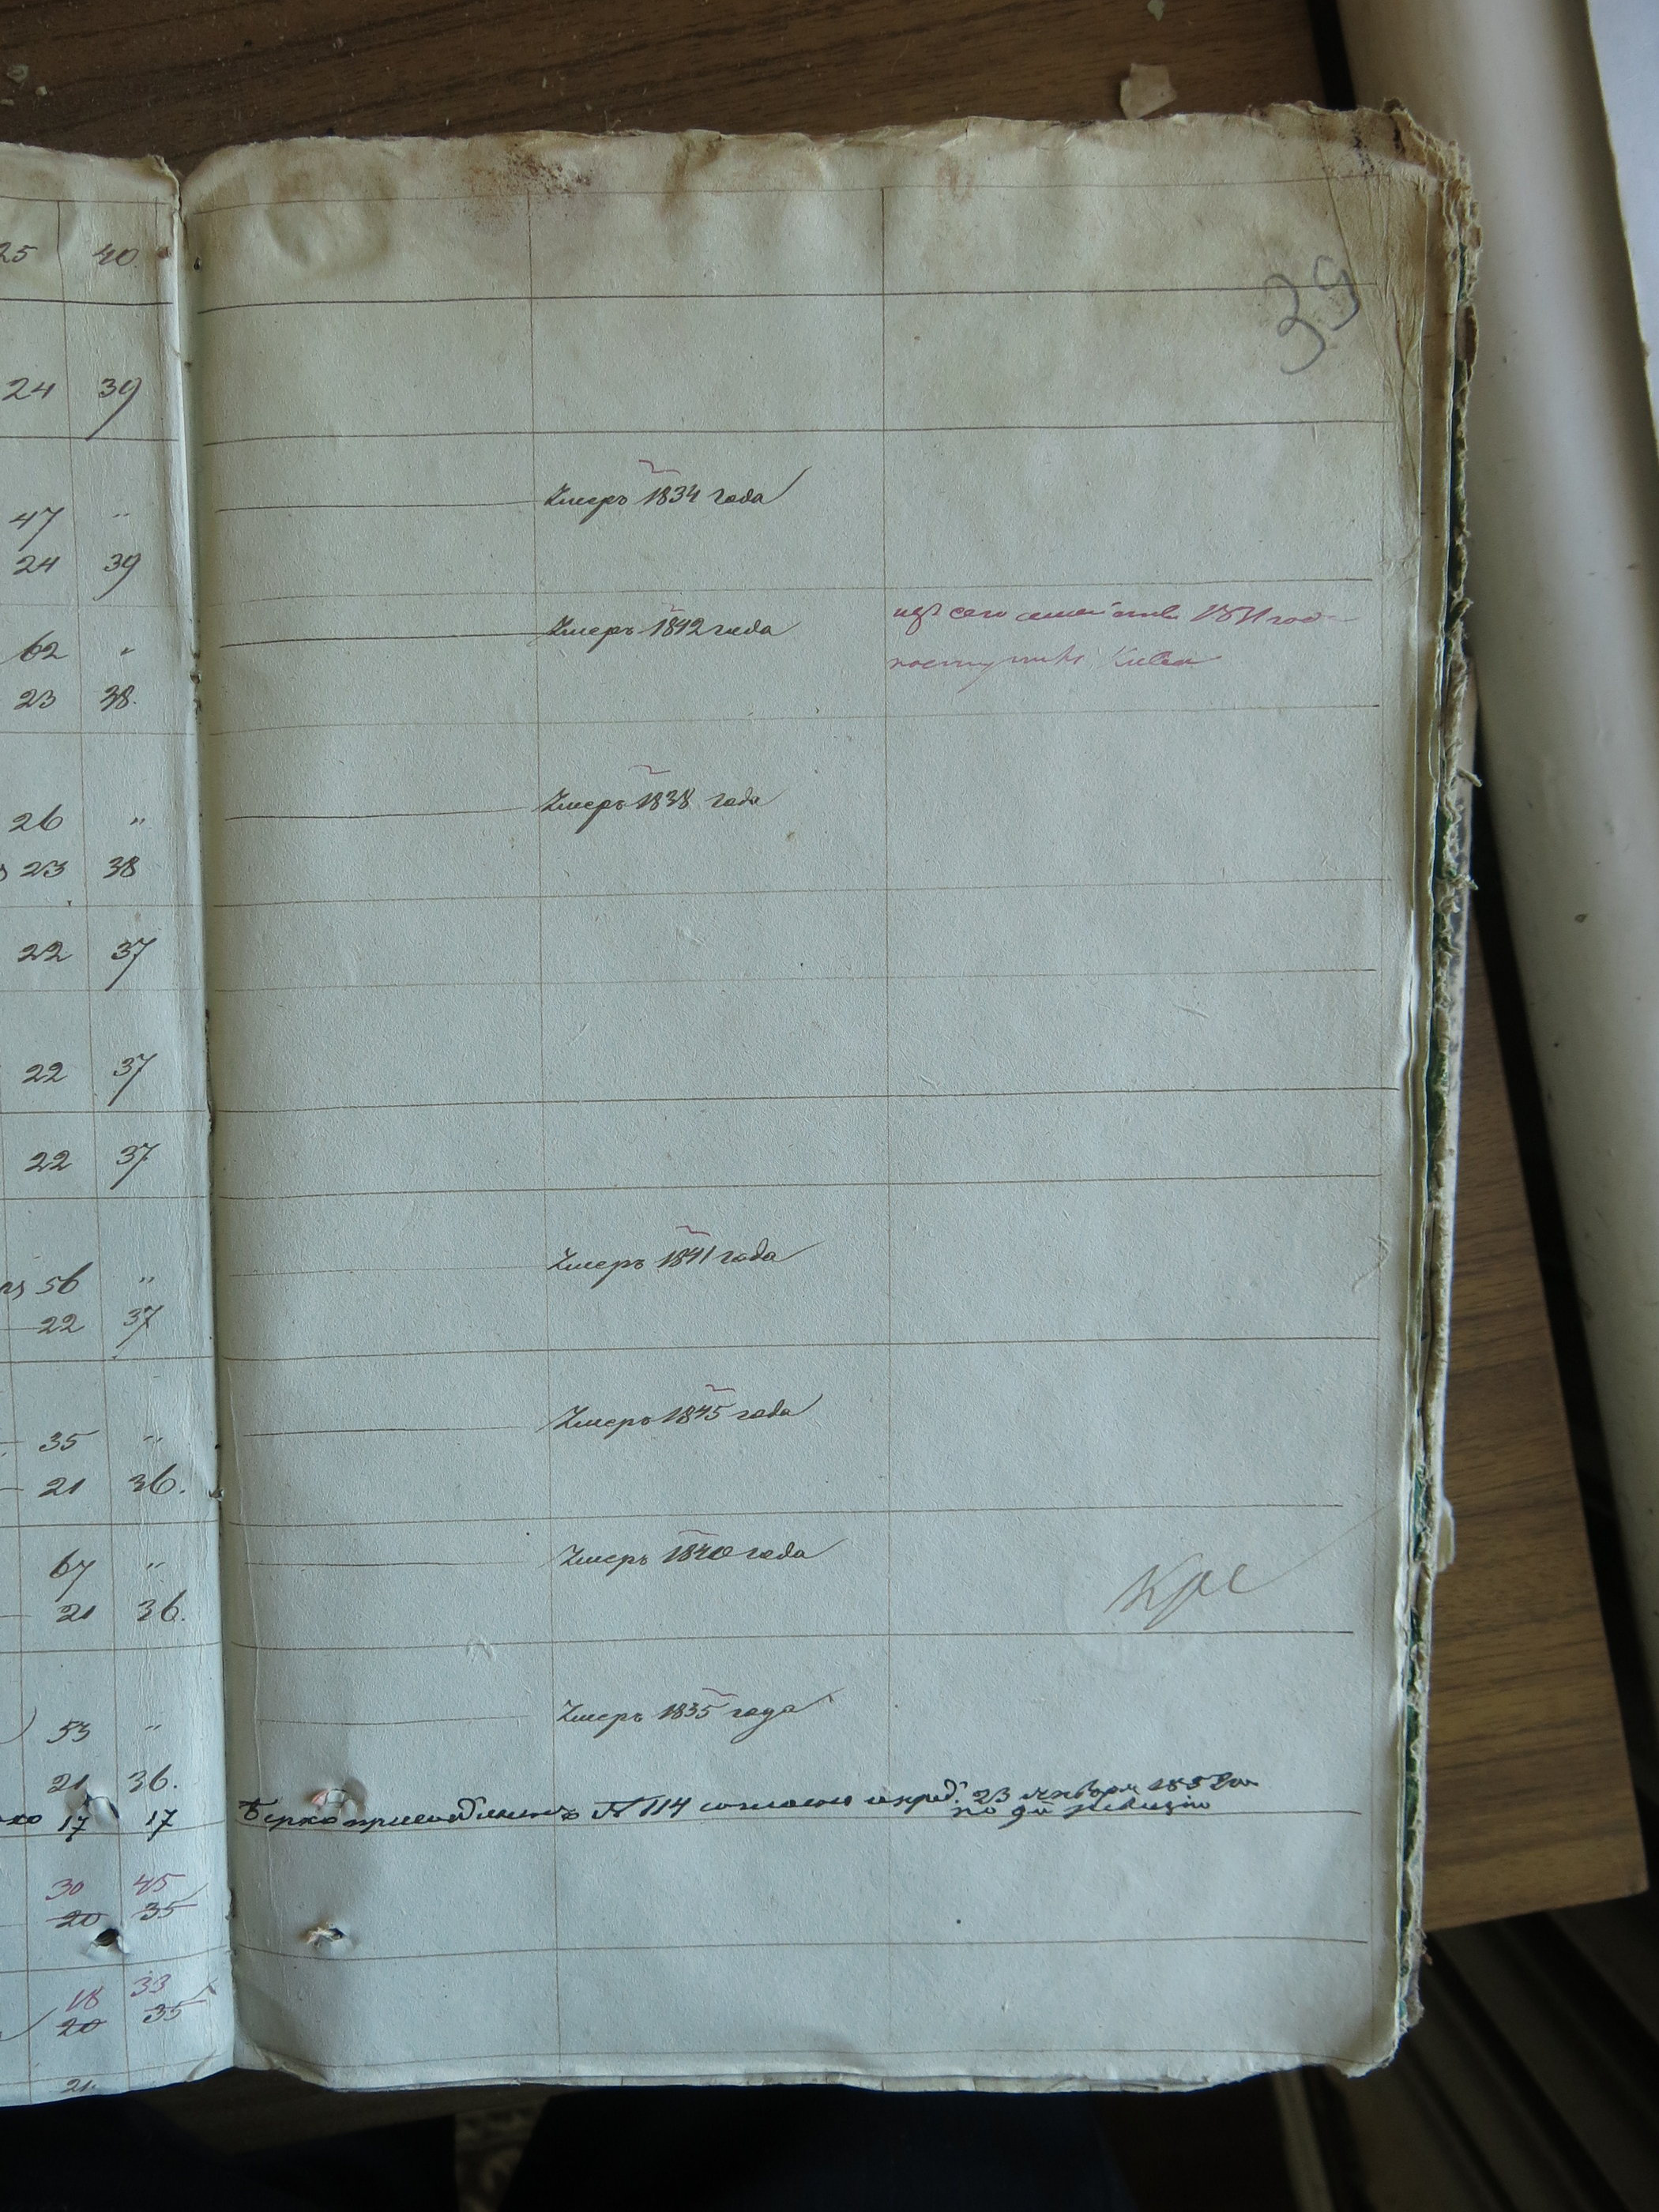 25 40
39
24 39
Умеръ 1834 года
47 "
24 39
Умеръ 1842 года
изъ сего семейства год
62 "
поступилъ
23 38.
Умеръ 1838 года
26 "
23 38
22 37
22 37
22 37
Умеръ 1841 года
56 "
22 37
Умеръ 1845 года
35 "
21 36.
Умеръ 1840 года
67 "
21 36.
Умеръ 1835 года
53 "
21 36.
17 17 Берко № 114 23 января
по 9й ревизіи
30 45
20 35
18 33
20 35
21.